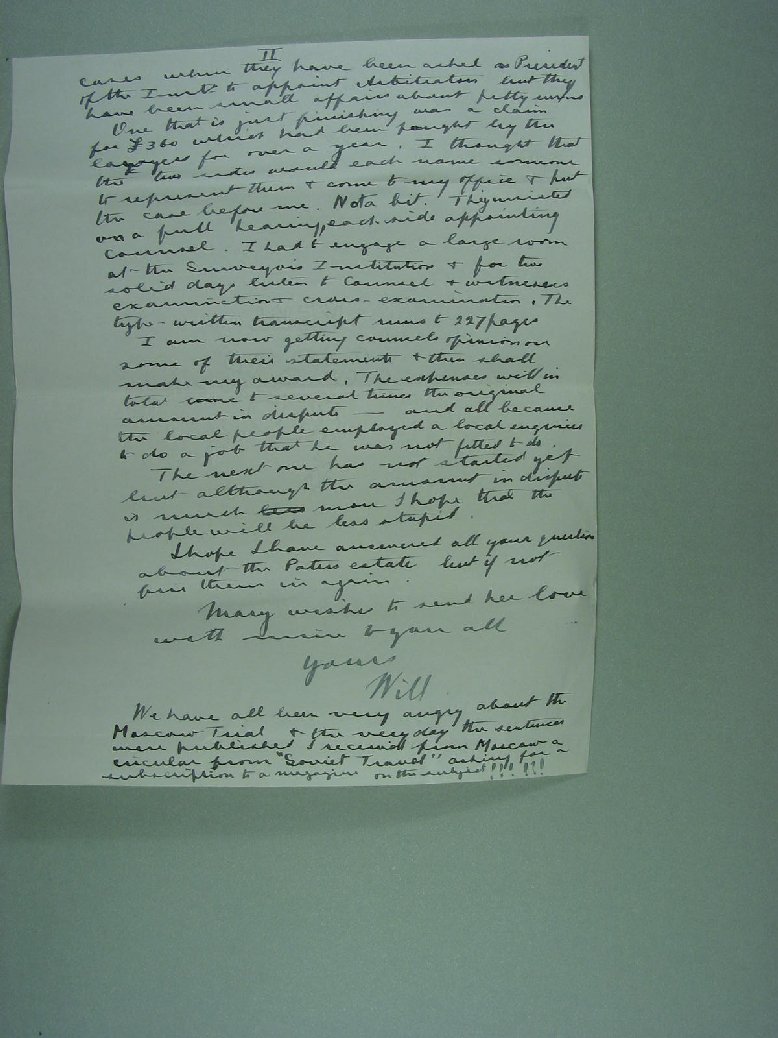 II
cases when they have been asked as President
of the Inst. to appoint Arbitrators but they
have been small affairs about petty
One that is just finishing was a claim
for £360 which had been fought by the
lawyers for over a year. I thought that
the two sides would each name someone
to represent them & come to my office & put
the case before me. Not a bit. They insisted
on a full hearing, each side appointing
Counsel. I had to engage a large room
at the Surveyors Institution & for two
solid days listen to Counsel & witnesses
examination & cross-examination. The
type-written transcript runs to 227 pages
I am now getting counsels opinion on
some of their statements & then shall
make my award. The expenses will in
total come to several times the original
amount in dispute — and all because
the local people employed a local engineer
to do a job that he was not fitted to do.
The next one has not started yet
but although the amount in dispute
is much less more I hope that the
people will be less stupid.
I hope I have answered all your questions
about the Paters estate but if not
fire them in again.
Mary wishes to send her love
with mine to you all
Yours
Will
We have all been very angry about the
Moscow Trial & the very day the sentences
were published I received from Moscow a
circular from "Soviet Travel" asking for a
subscription to a magazine on the subject!!! !!!